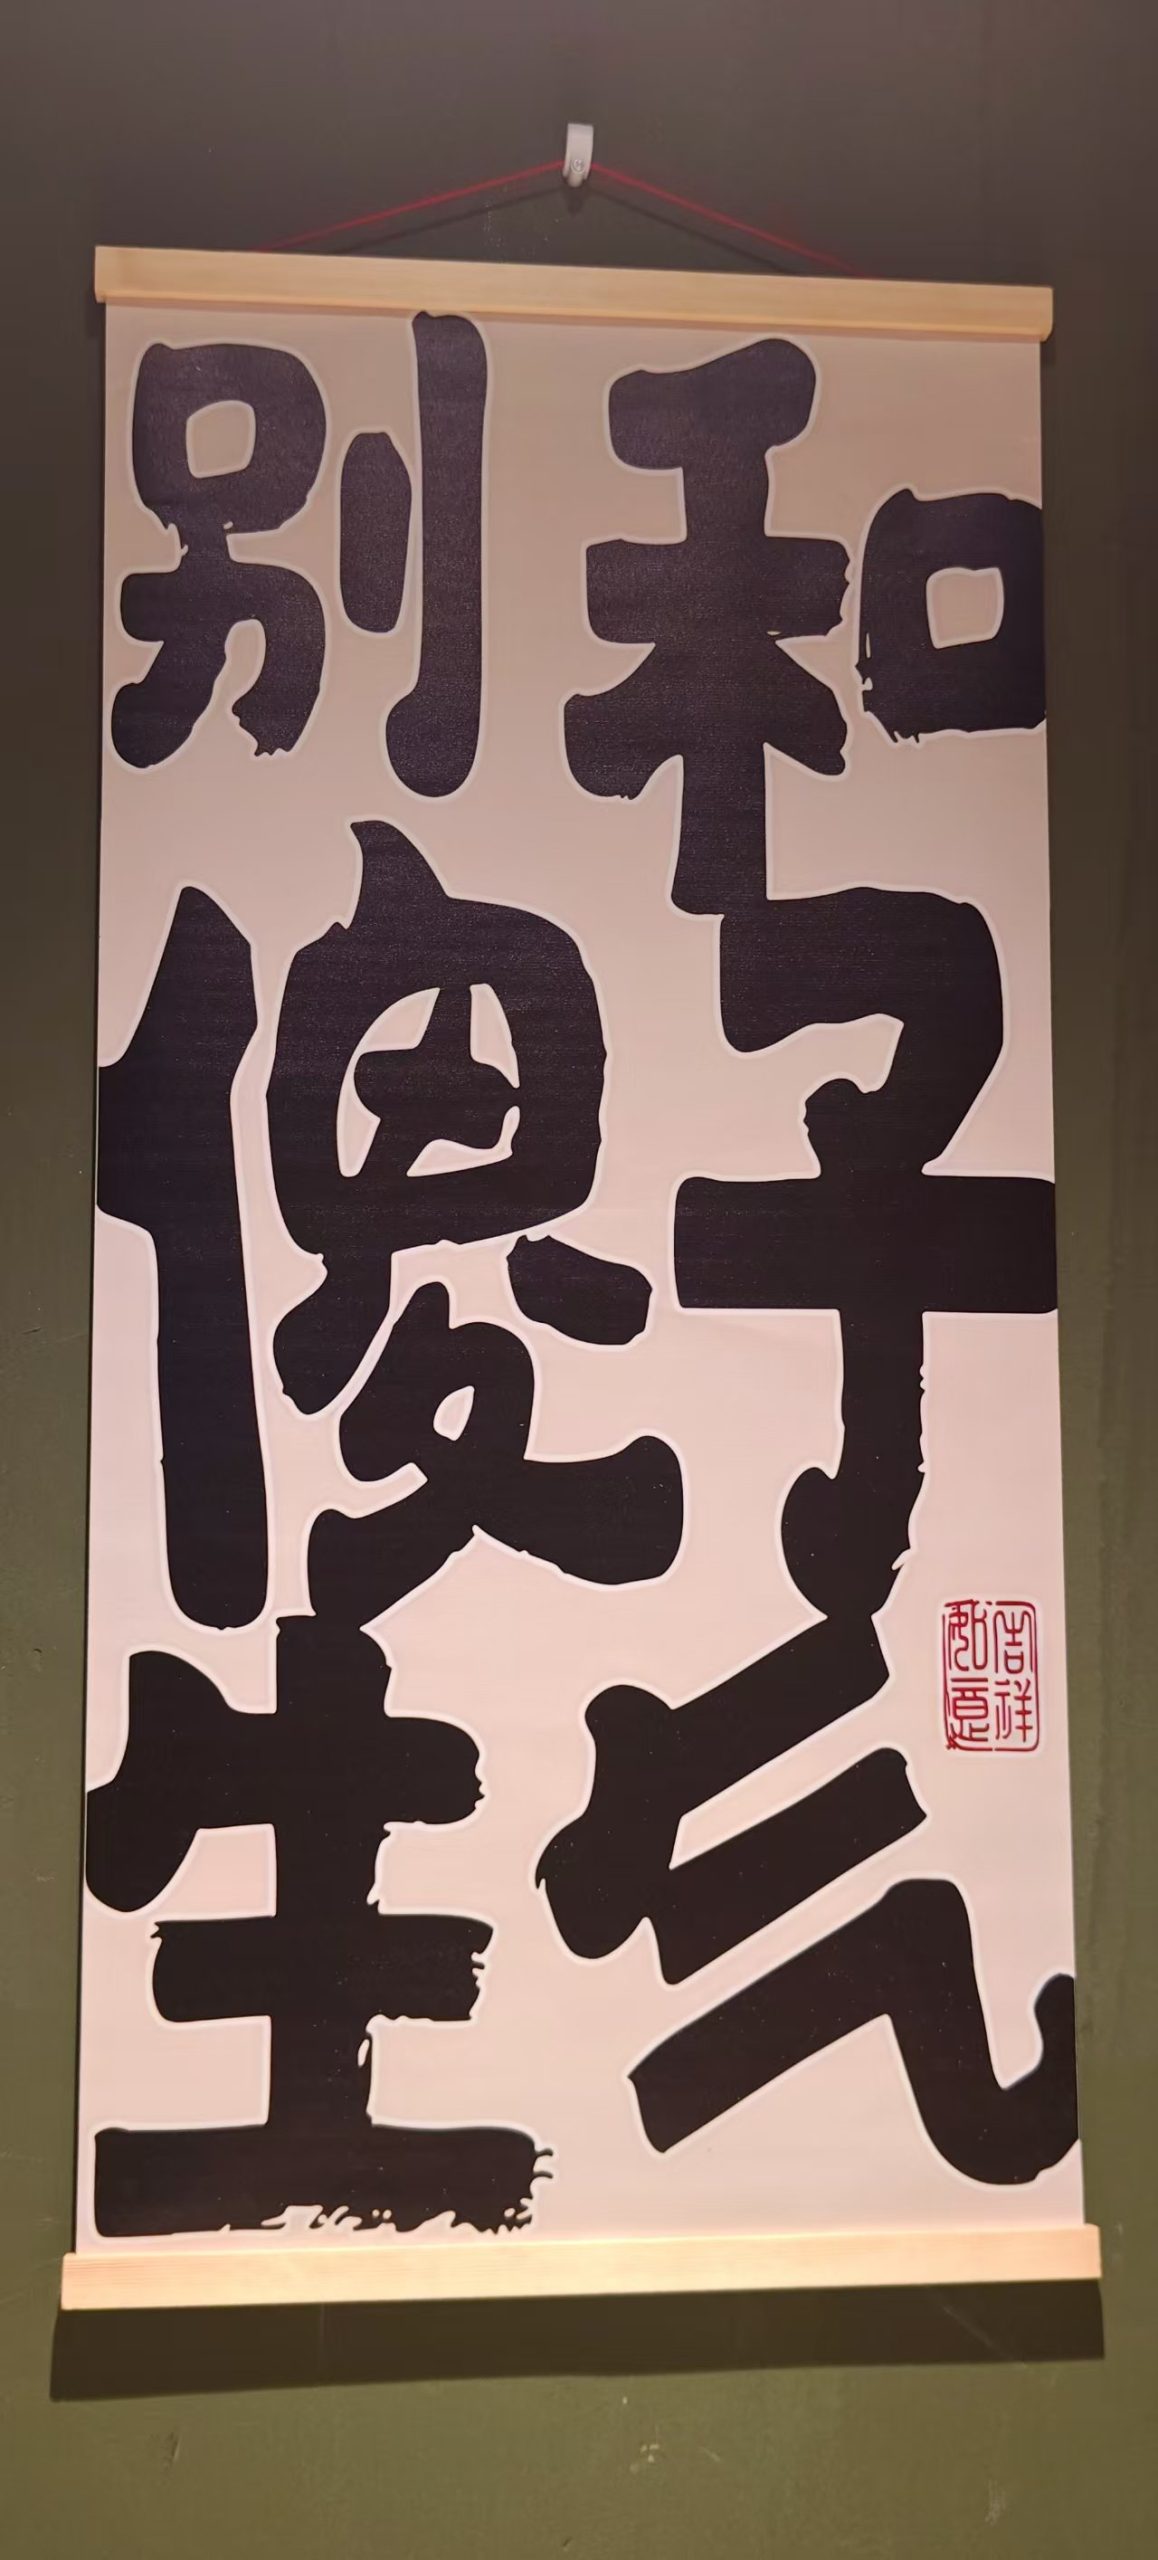 别和
傻子
生气
吉祥
如意